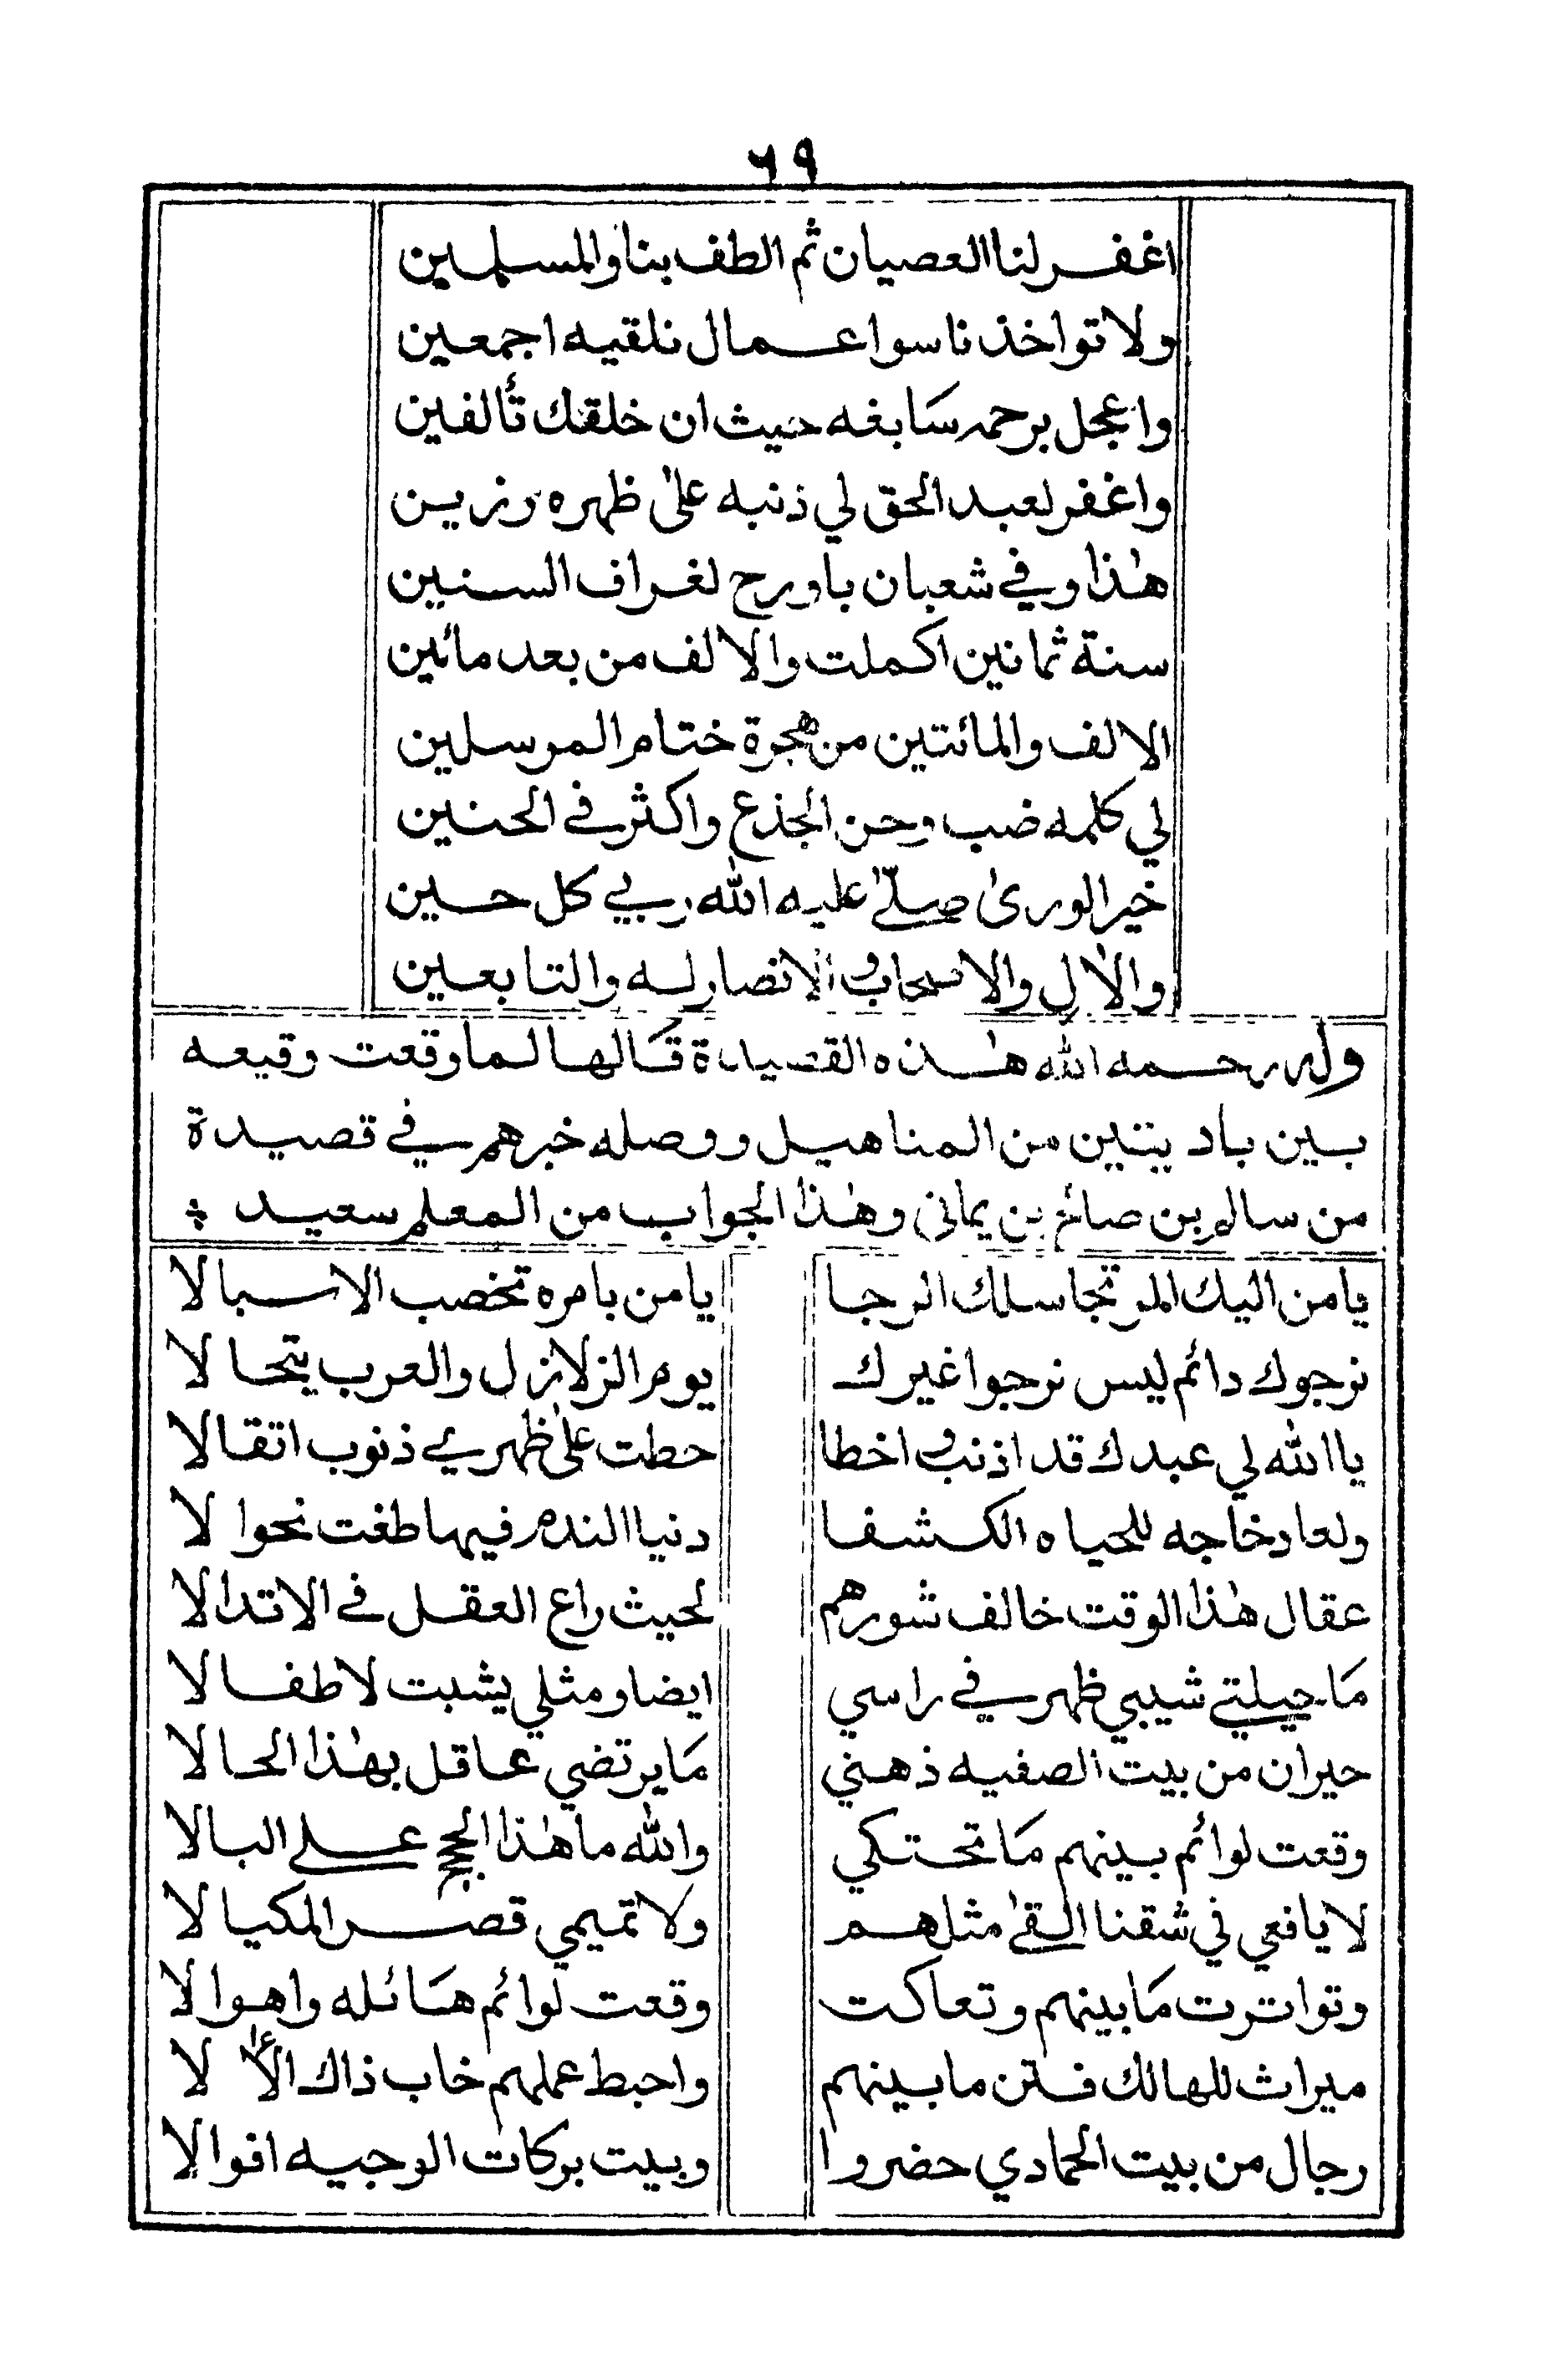 ٦٩
اغفر لنا العصيان ثم الطف بنا والمسلمين
ولا تواخذنا سوا عمال نلقيه اجمعين
واعجل برحمه سابغه حيث ان خلقك تألفين
واغفر لعبد الحق لي ذنبه على ظهره رزين
هذا وفي شعبان باورح لغراف السنين
سنة ثمانين اكملت والالف من بعد مائين
الالف والمائتين من هجرة ختام المرسلين
لي كلمه ضب وحن الجذع واكثر في الحنين
خير الورى صلّى عليه الله ربي كل حين
والال والاصحاب والانصار له والتابعين
وله رحمه الله هذه القصيدة قالها لما وقعت وقيعه
بين باديتين من المناهيل ووصله خبرهم في قصيدة
من سالم بن صالح بن يماني وهذا الجواب من المعلم سعيد
يا من اليك المرتجا سلك الرجا يا من بامره تخصب الاسبالا
نرجوك دائم ليس نرجوا غيرك يوم الزلازل والعرب يتحالا
يا الله لي عبدك قد اذنب واخطا حطت على ظهري ذنوب اتقالا
ولعاد خاجه للحياه الكشفا دنيا الندم فيها طغت نحوالا
عقال هذا الوقت خالف شورهم لحيث راع العقل في الاتدالا
ما حيلتي شيبي ظهر في راسي ايضا ومثلي يشبت لاطفالا
حيران من بيت الصفيه ذهني ما يرتضي عاقل بهذا الحالا
وقعت لوائم بينهم ما تحتكي والله ما هذا الحجج على البالا
لا يافعي في شقنا القى مثلهم ولا تميمي قصر المكيالا
وتواترت ما بينهم وتعاكت وقعت لوائم هائله واهوالا
ميراث للهالك فتن ما بينهم واحبط عملهم خاب ذاك الاعالا
رجال من بيت الحمادي حضروا وبيت بركات الوجيه افوالا